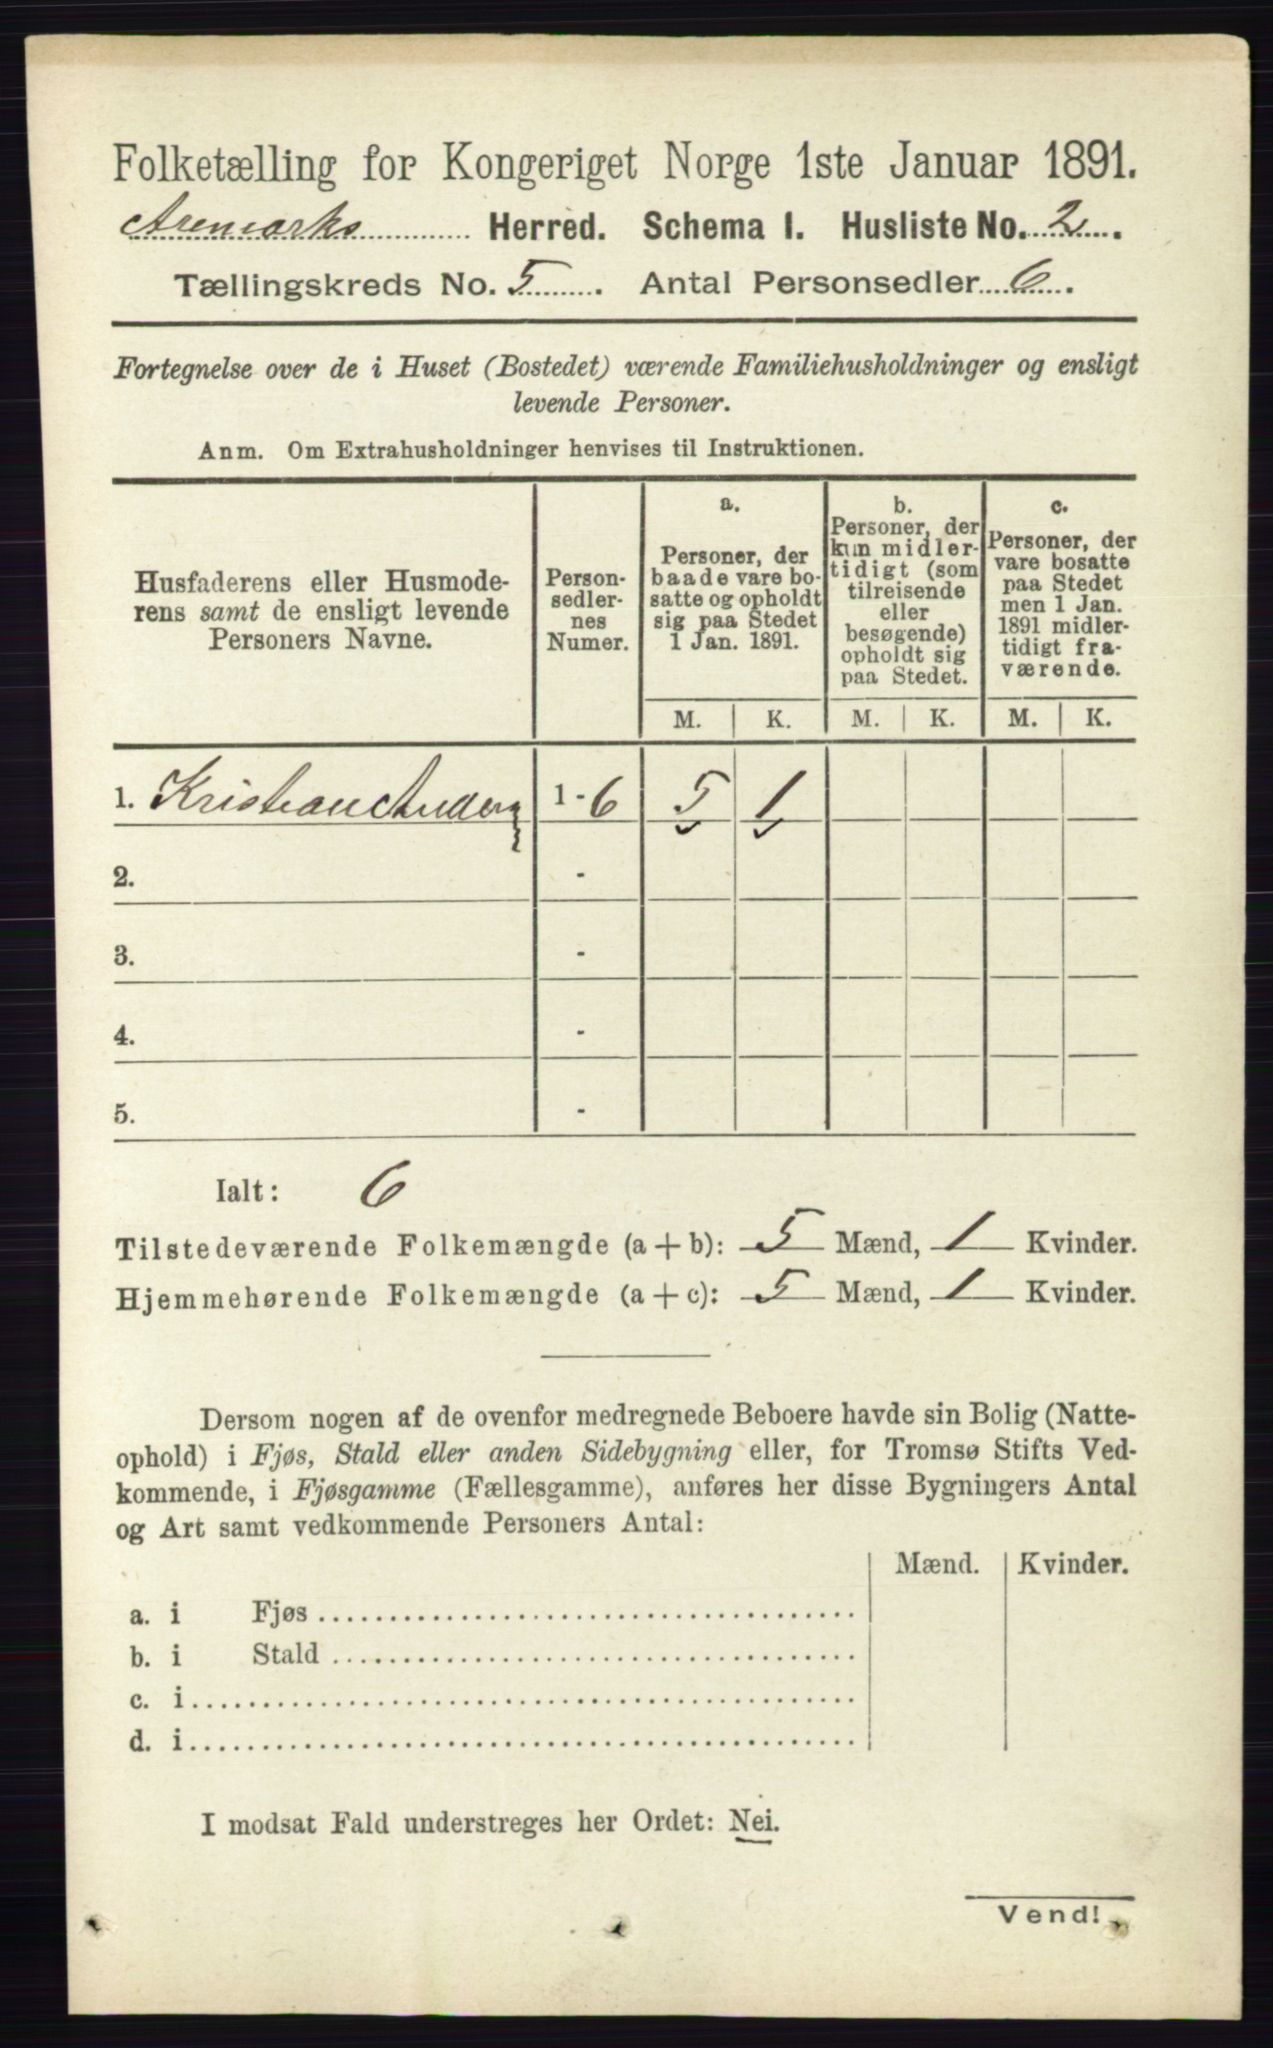 Folketælling for Kongeriget Norge 1ste Januar 1891.
Aremarks Herred. Schema I. Husliste No. 2.
Tællingskreds No. 5. Antal Personsedler 6.
Fortegnelse over de i Huset (Bostedet) værende Familiehusholdninger og ensligt
levende Personer.
Anm. Om Extrahusholdninger henvises til Instruktionen.
Husfaderens eller Husmode-
rens samt de ensligt levende
Personers Navne.
Person-
sedler-
nes
Numer.
a.
Personer, der
baade vare bo-
satte og opholdt
sig paa Stedet
1 Jan. 1891.
b.
Personer, der
kun midler-
tidigt (som
tilreisende
eller
besøgende)
opholdt sig
paa Stedet.
c.
Personer, der
vare bosatte
paa Stedet
men 1 Jan.
1891 midler-
tidigt fra-
værende.
M. K. M. K. M. K.
1. Kristian 1 - 6 5 1
2. -
3. -
4. -
5. -
Ialt: 6
Tilstedeværende Folkemængde (a + b): 5 Mænd, 1 Kvinder.
Hjemmehørende Folkemængde (a + c): 5 Mænd, 1 Kvinder.
Dersom nogen af de ovenfor medregnede Beboere havde sin Bolig (Natte-
ophold) i Fjøs, Stald eller anden Sidebygning eller, for Tromsø Stifts Ved-
kommende, i Fjøsgamme (Fællesgamme), anføres her disse Bygningers Antal
og Art samt vedkommende Personers Antal:
Mænd. Kvinder.
a. i Fjøs
b. i Stald
c. i
d. i
I modsat Fald understreges her Ordet: Nei.
Vend!